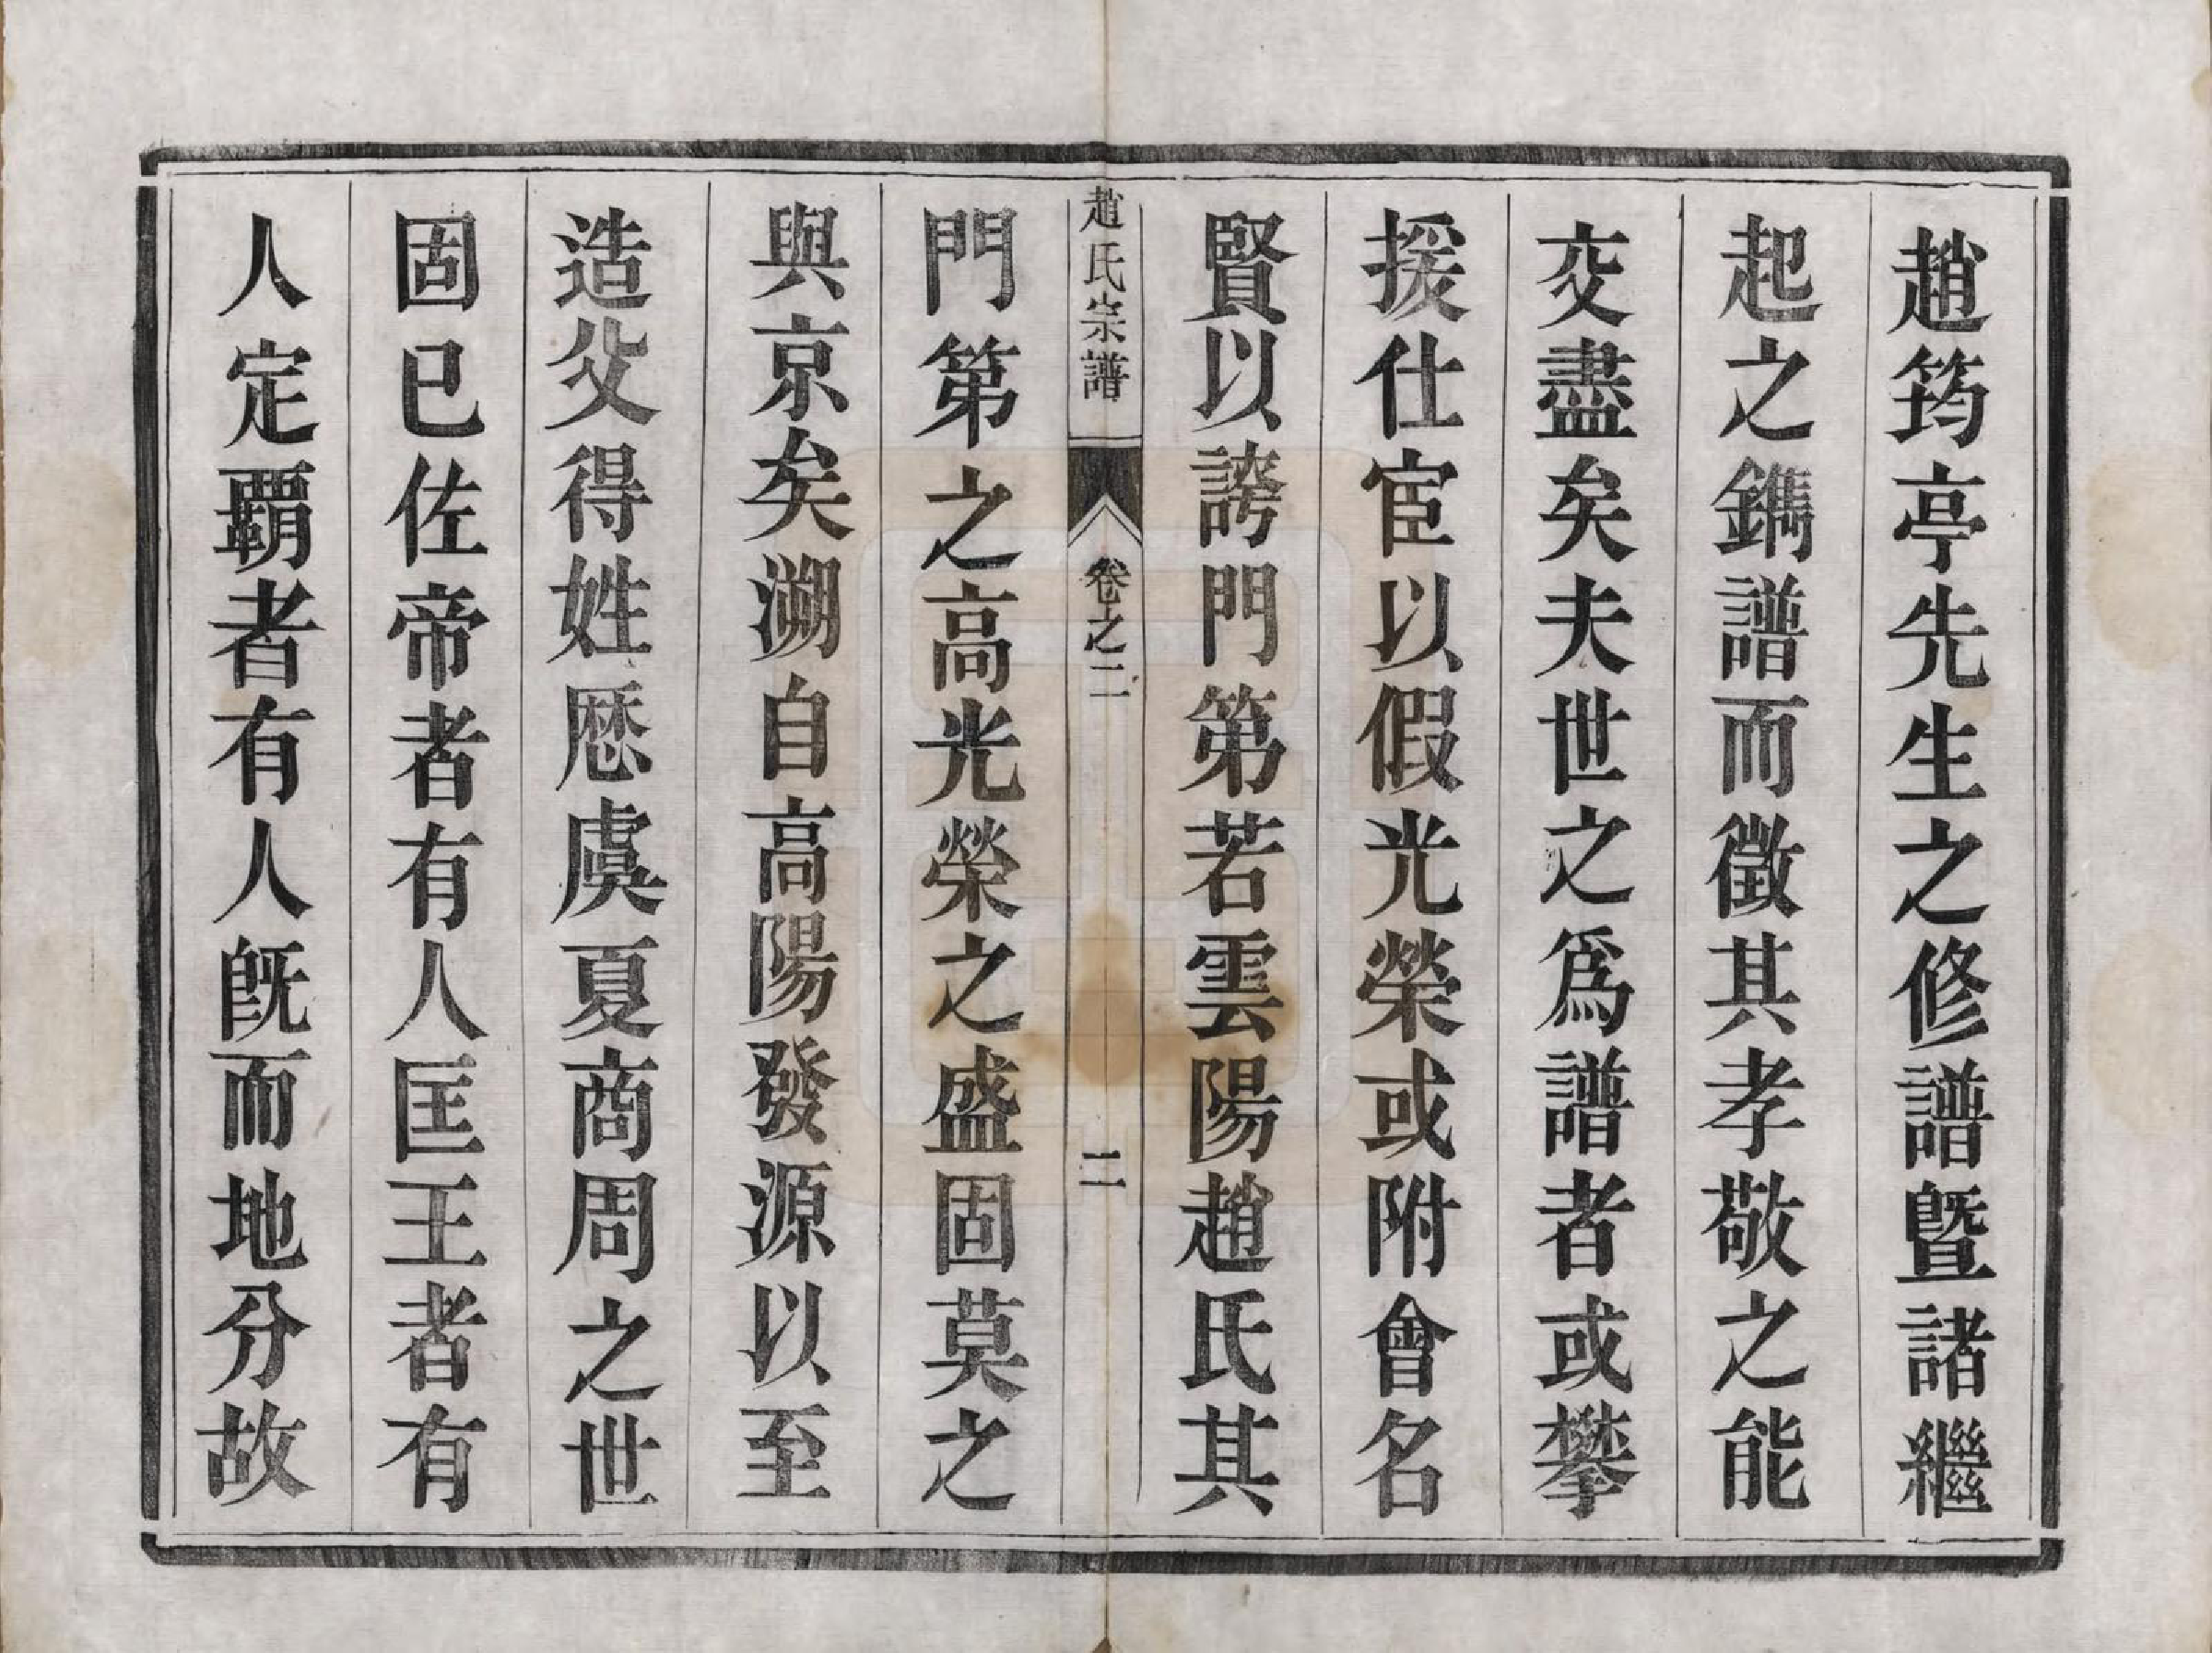 趙筠亭先生之修譜暨諸繼
起之鐫譜而徵其孝敬之能
交盡矣夫世之爲譜者或攀
援仕宦以假光榮或附會名
賢以誇門第若雲陽趙氏其
趙氏宗譜 卷之二 二
門第之高光榮之盛固莫之
與京矣溯自高陽發源以至
造父得姓歷虞夏商周之世
固已佐帝者有人匡王者有
人定覇者有人旣而地分故